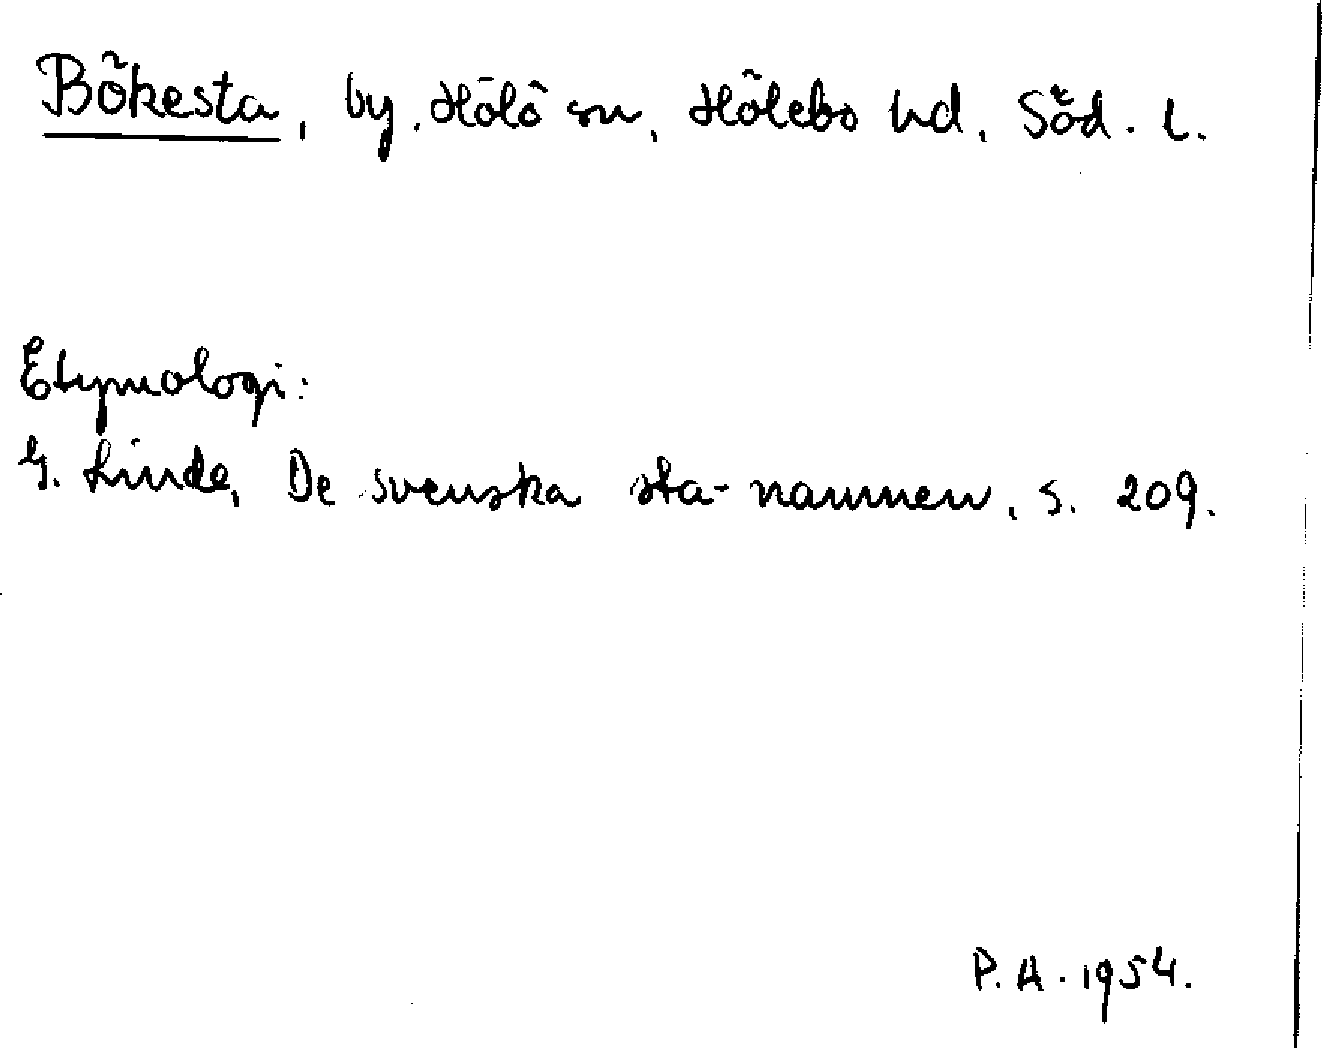 Bökesta, by, Hölö sn, Hölebo hd, Söd. l.
Etymologi:
G. Linde, De svenska sta-namnen, s. 209.
P. A. 1954.